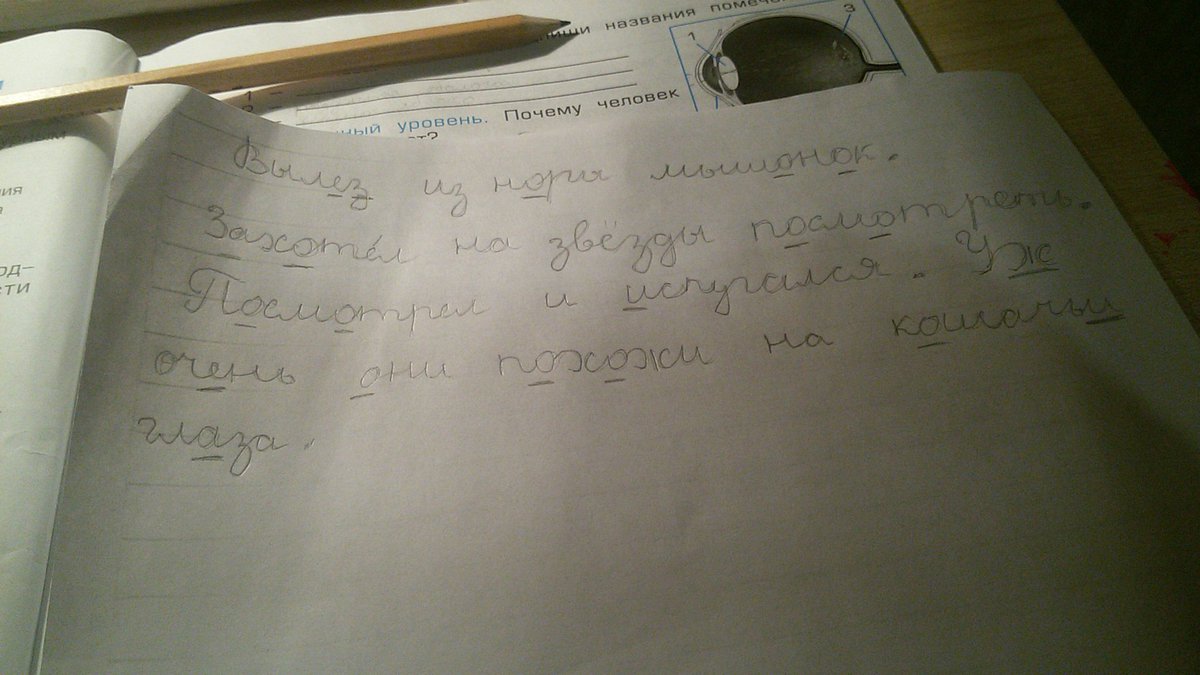 пиши названия помече
1
3
1
ный уровень. Почему человек
ет?
ния
а
од–
сти
Вылез из норы мышонок.
Захотел на звёзды посмотреть.
Посмотрел и испугался. Уж
очень они похожи на кошачьи
глаза.